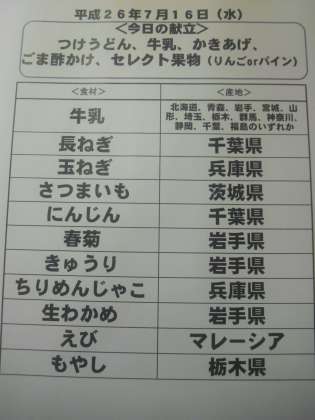 平成26年7月16日（水）
＜今日の献立＞
つけうどん、牛乳、かきあげ、
ごま酢かけ、セレクト果物（りんごorパイン）
＜食材＞ ＜産地＞
牛乳 北海道、青森、岩手、宮城、山
形、埼玉、栃木、群馬、神奈川、
静岡、千葉、福島のいずれか
長ねぎ 千葉県
玉ねぎ 兵庫県
さつまいも 茨城県
にんじん 千葉県
春菊 岩手県
きゅうり 岩手県
ちりめんじゃこ 兵庫県
生わかめ 岩手県
えび マレーシア
もやし 栃木県